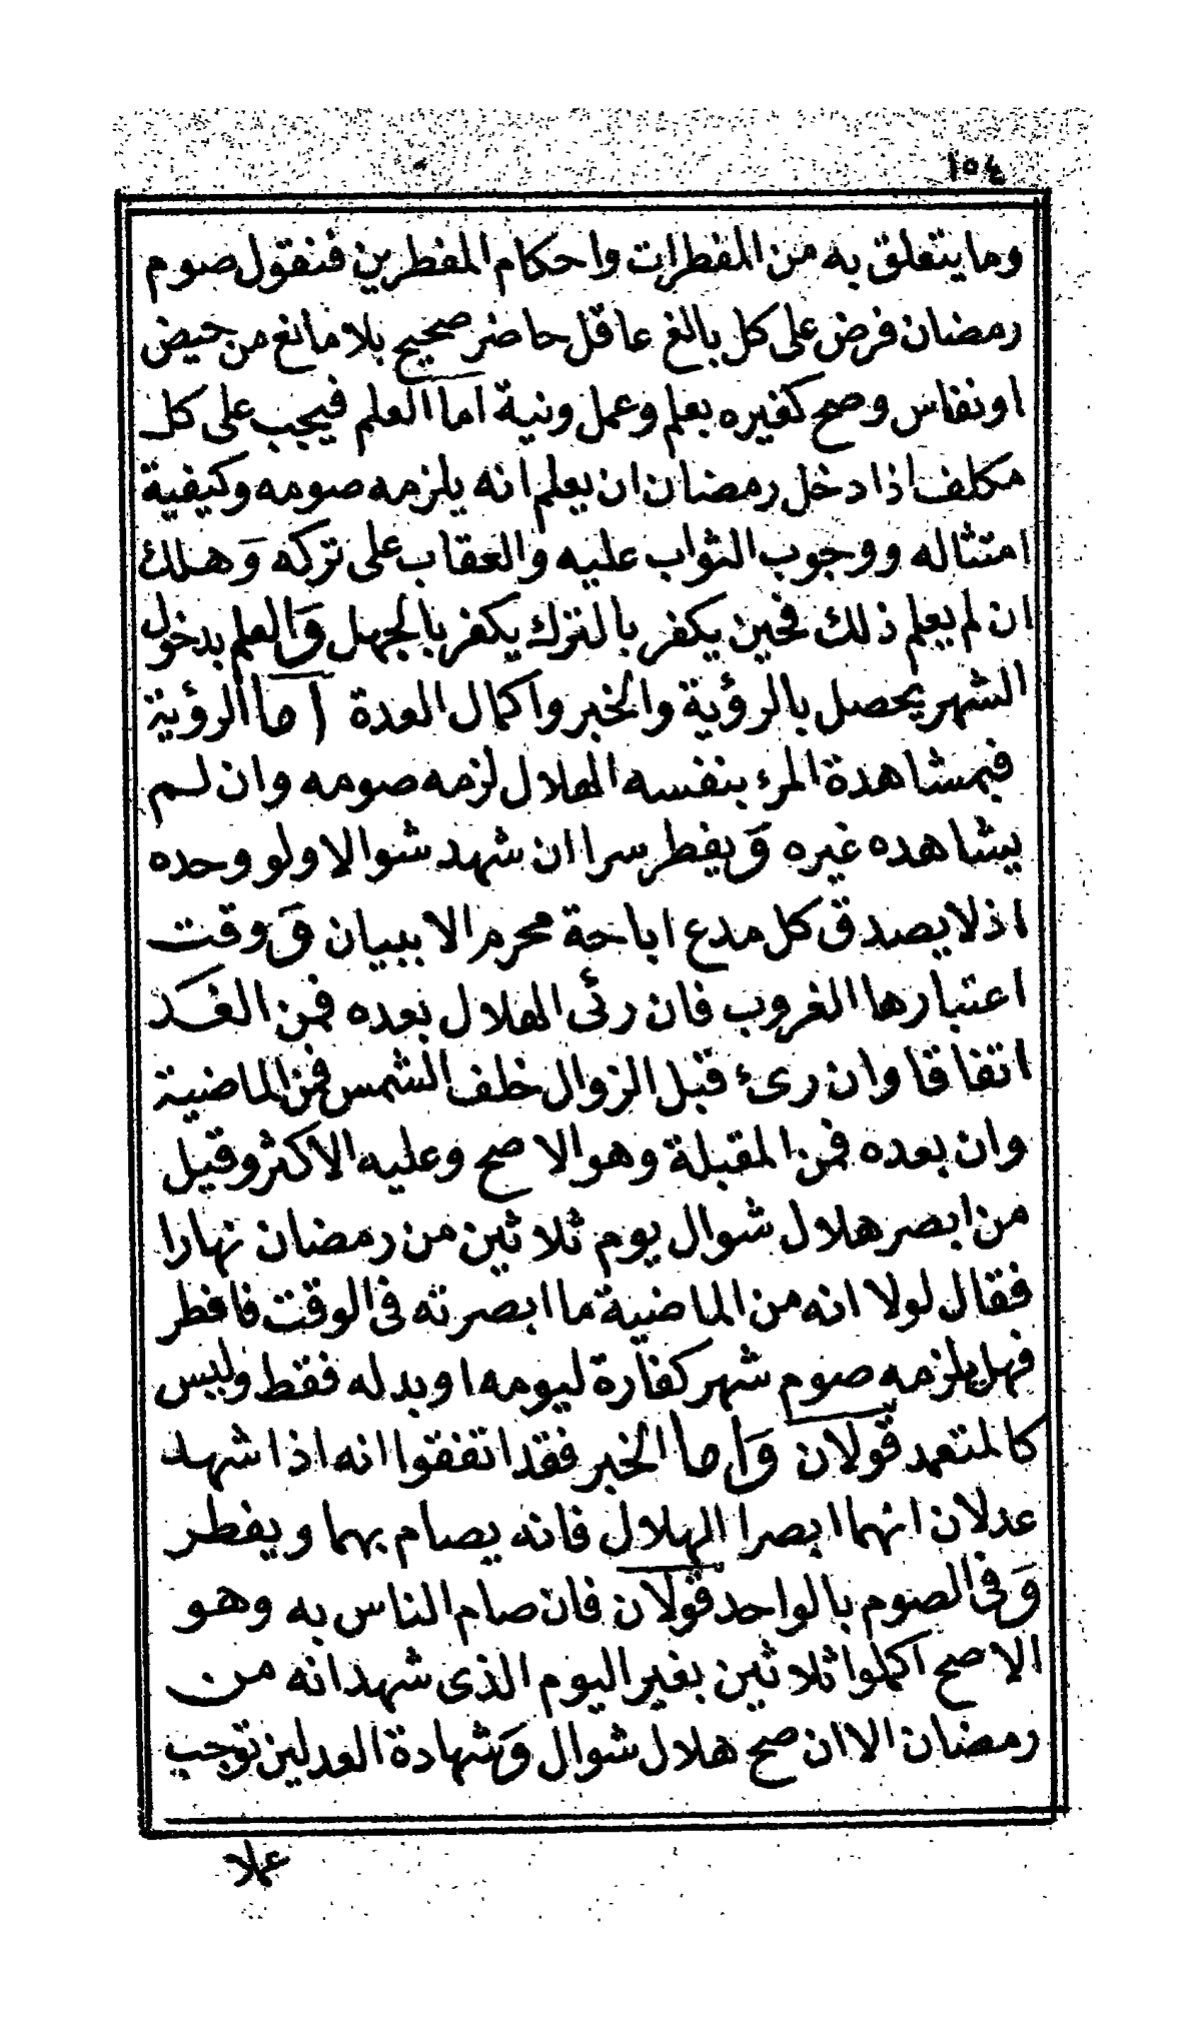 ١٥٤
وما يتعلق به من المفطرات واحكام المفطرين فنقول صوم
رمضان فرض على كل بالغ عاقل حاضر صحيح بلا مانع من حيض
او نفاس وصح كغيره بعلم وعمل ونية اما العلم فيجب على كل
مكلف اذا دخل رمضان ان يعلم انه يلزمه صومه وكيفية
امتثاله ووجوب الثواب عليه والعقاب على تركه وَهلك
ان لم يعلم ذلك فحين يكفر بالترك يكفر بالجهل وَالعلم بدخول
الشهر يحصل بالرؤية والخبر واكمال العدة اما الرؤية
فبمشاهدة المرء بنفسه الهلال لزمه صومه وان لم
يشاهده غيره وَيفطر سرا ان شهد شوالا ولو وحده
اذ لا يصدق كل مدع اباحة محرم الا ببيان وَوقت
اعتبارها الغروب فان رئى الهلال بعده فمن الغَد
اتفاقا وان رىء قبل الزوال خلف الشمس فمن الماضية
وان بعده فمن المقبلة وهو الاصح وعليه الاكثر وقيل
من ابصر هلال شوال يوم ثلاثين من رمضان نهارا
فقال لولا انه من الماضية ما ابصرته فى الوقت فافطر
فهل يلزمه صوم شهر كفارة ليومه او بدله فقط وليس
كالمتعمد قولان وَاما الخبر فقد اتفقوا انه اذا شهد
عدلان انهما ابصرا الهلال فانه يصام بهما ويفطر
وَفى الصوم بالواحد قولان فان صام الناس به وهو
الاصح اكملوا ثلاثين بغير اليوم الذى شهد انه من
رمضان الا ان صح هلال شوال وَشهادة العدلين توجب
عملا